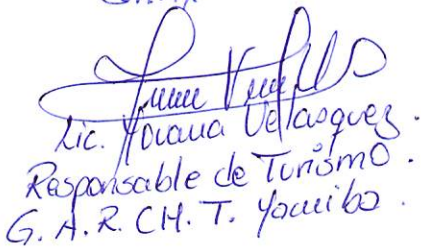 Lic. Yovana Velasquez.
Responsable de Turismo.
G. A. R. CH. T. Yacuiba.